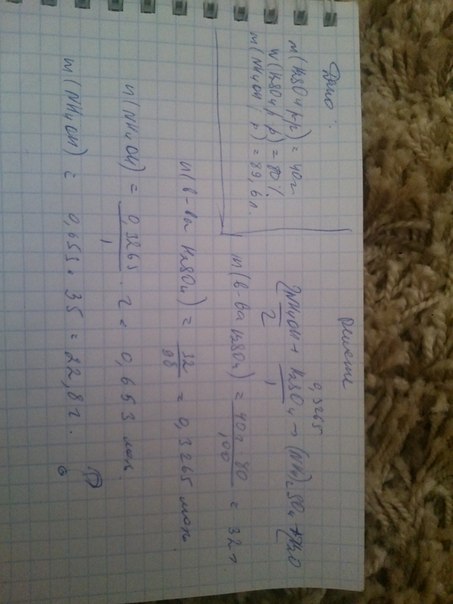 Дано:
m(H2SO4 р-р) = 40 г
W(H2SO4 р-р) = 80 %
m(NH4OH р) = 89,6 л.
Решение
0,3265
2NH4OH + H2SO4 → (NH4)2SO4 + 2H2O
2 1
m(в-ва H2SO4) = 40 · 80 / 100 = 32 г
n(в-ва H2SO4) = 32 / 98 = 0,3265 моль
n(NH4OH) = 0,3265 / 1 · 2 = 0,653 моль
m(NH4OH) = 0,653 · 35 = 22,8 г.